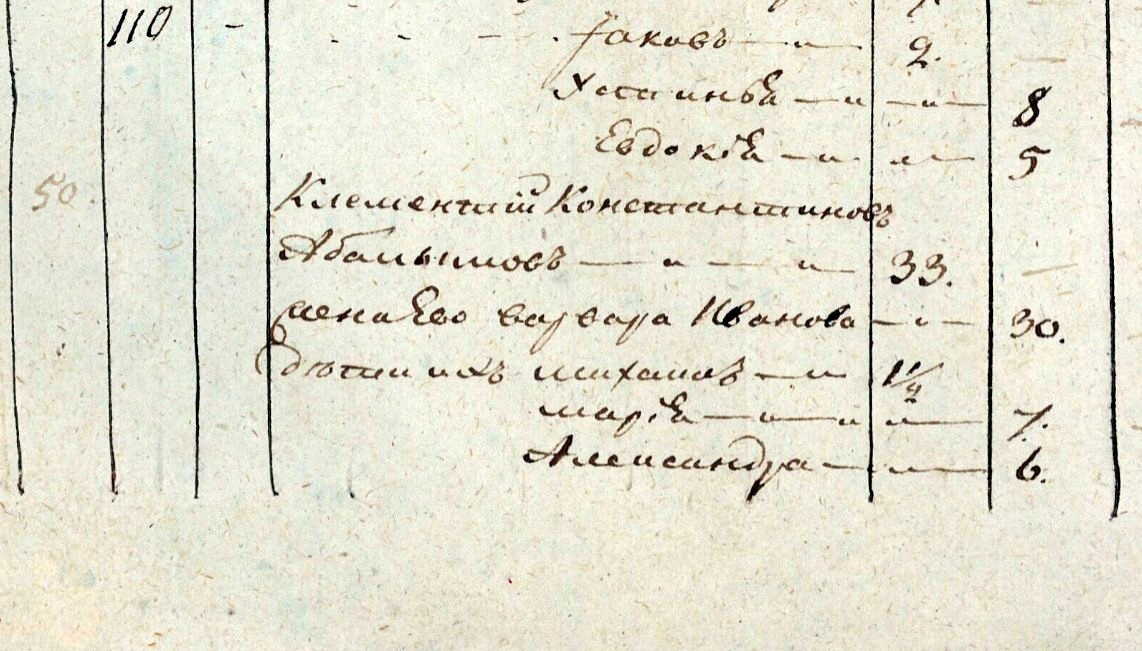 110 - - - - Іаковъ — „ — 2. —
Устинья — „ — „ — 8
Евдокія — „ „ — 5
50. Клементій Константиновъ
— „ — „ — 33. —
жена Ево варвара Иванова — „ — 30.
дѣти ихъ михаилъ — „ 1 1/4
марія — „ — „ „ — 7.
Александра — „ — 6.